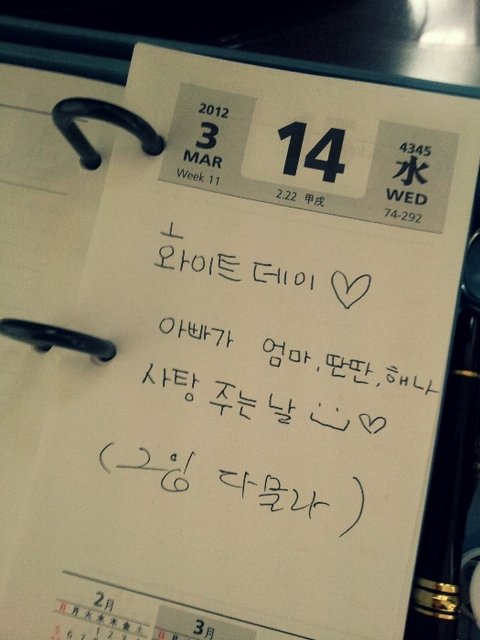 2012
3
MAR
Week 11
14
2.22 甲戌
4345
水
WED
74-292
화이트데이 ♡
아빠가 엄마, 딴딴, 해나
사탕 주는 날 ♡
(그잉 다믈라)
2月
日 月 火 水 木 金 土
3月